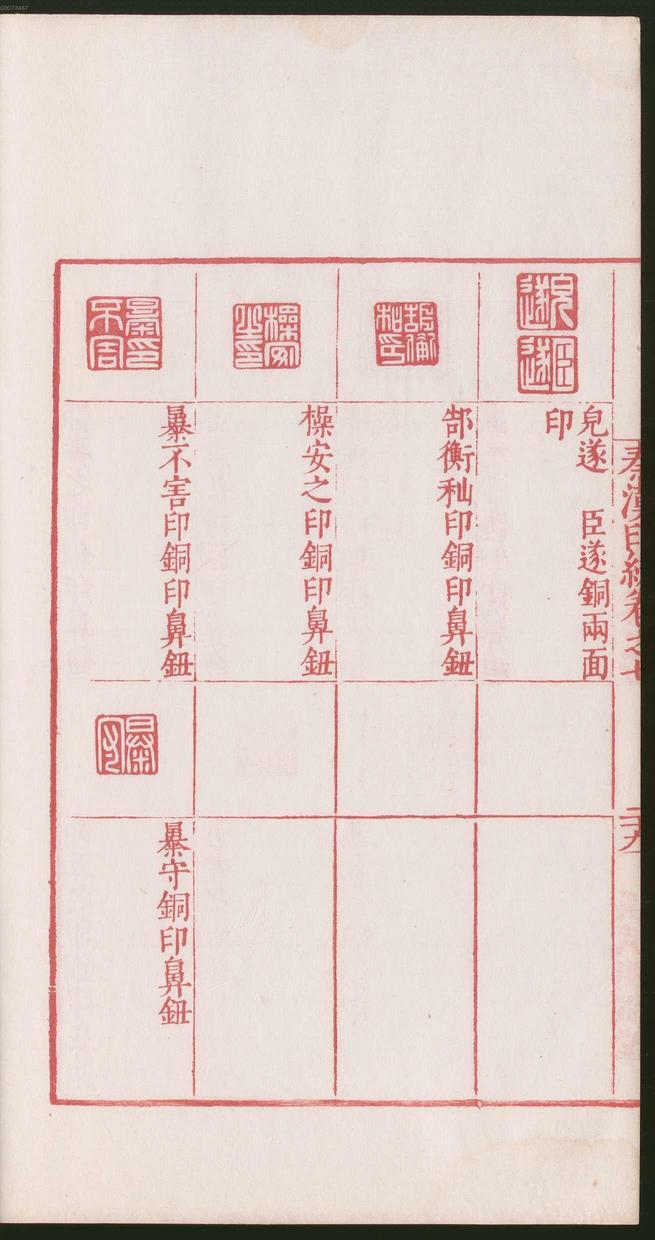 00073467
秦漢印統卷之七
二十九
皃遂　臣遂銅兩面
印
郜衡私印銅印鼻鈕
橾安之印銅印鼻鈕
暴不害印銅印鼻鈕
暴守銅印鼻鈕